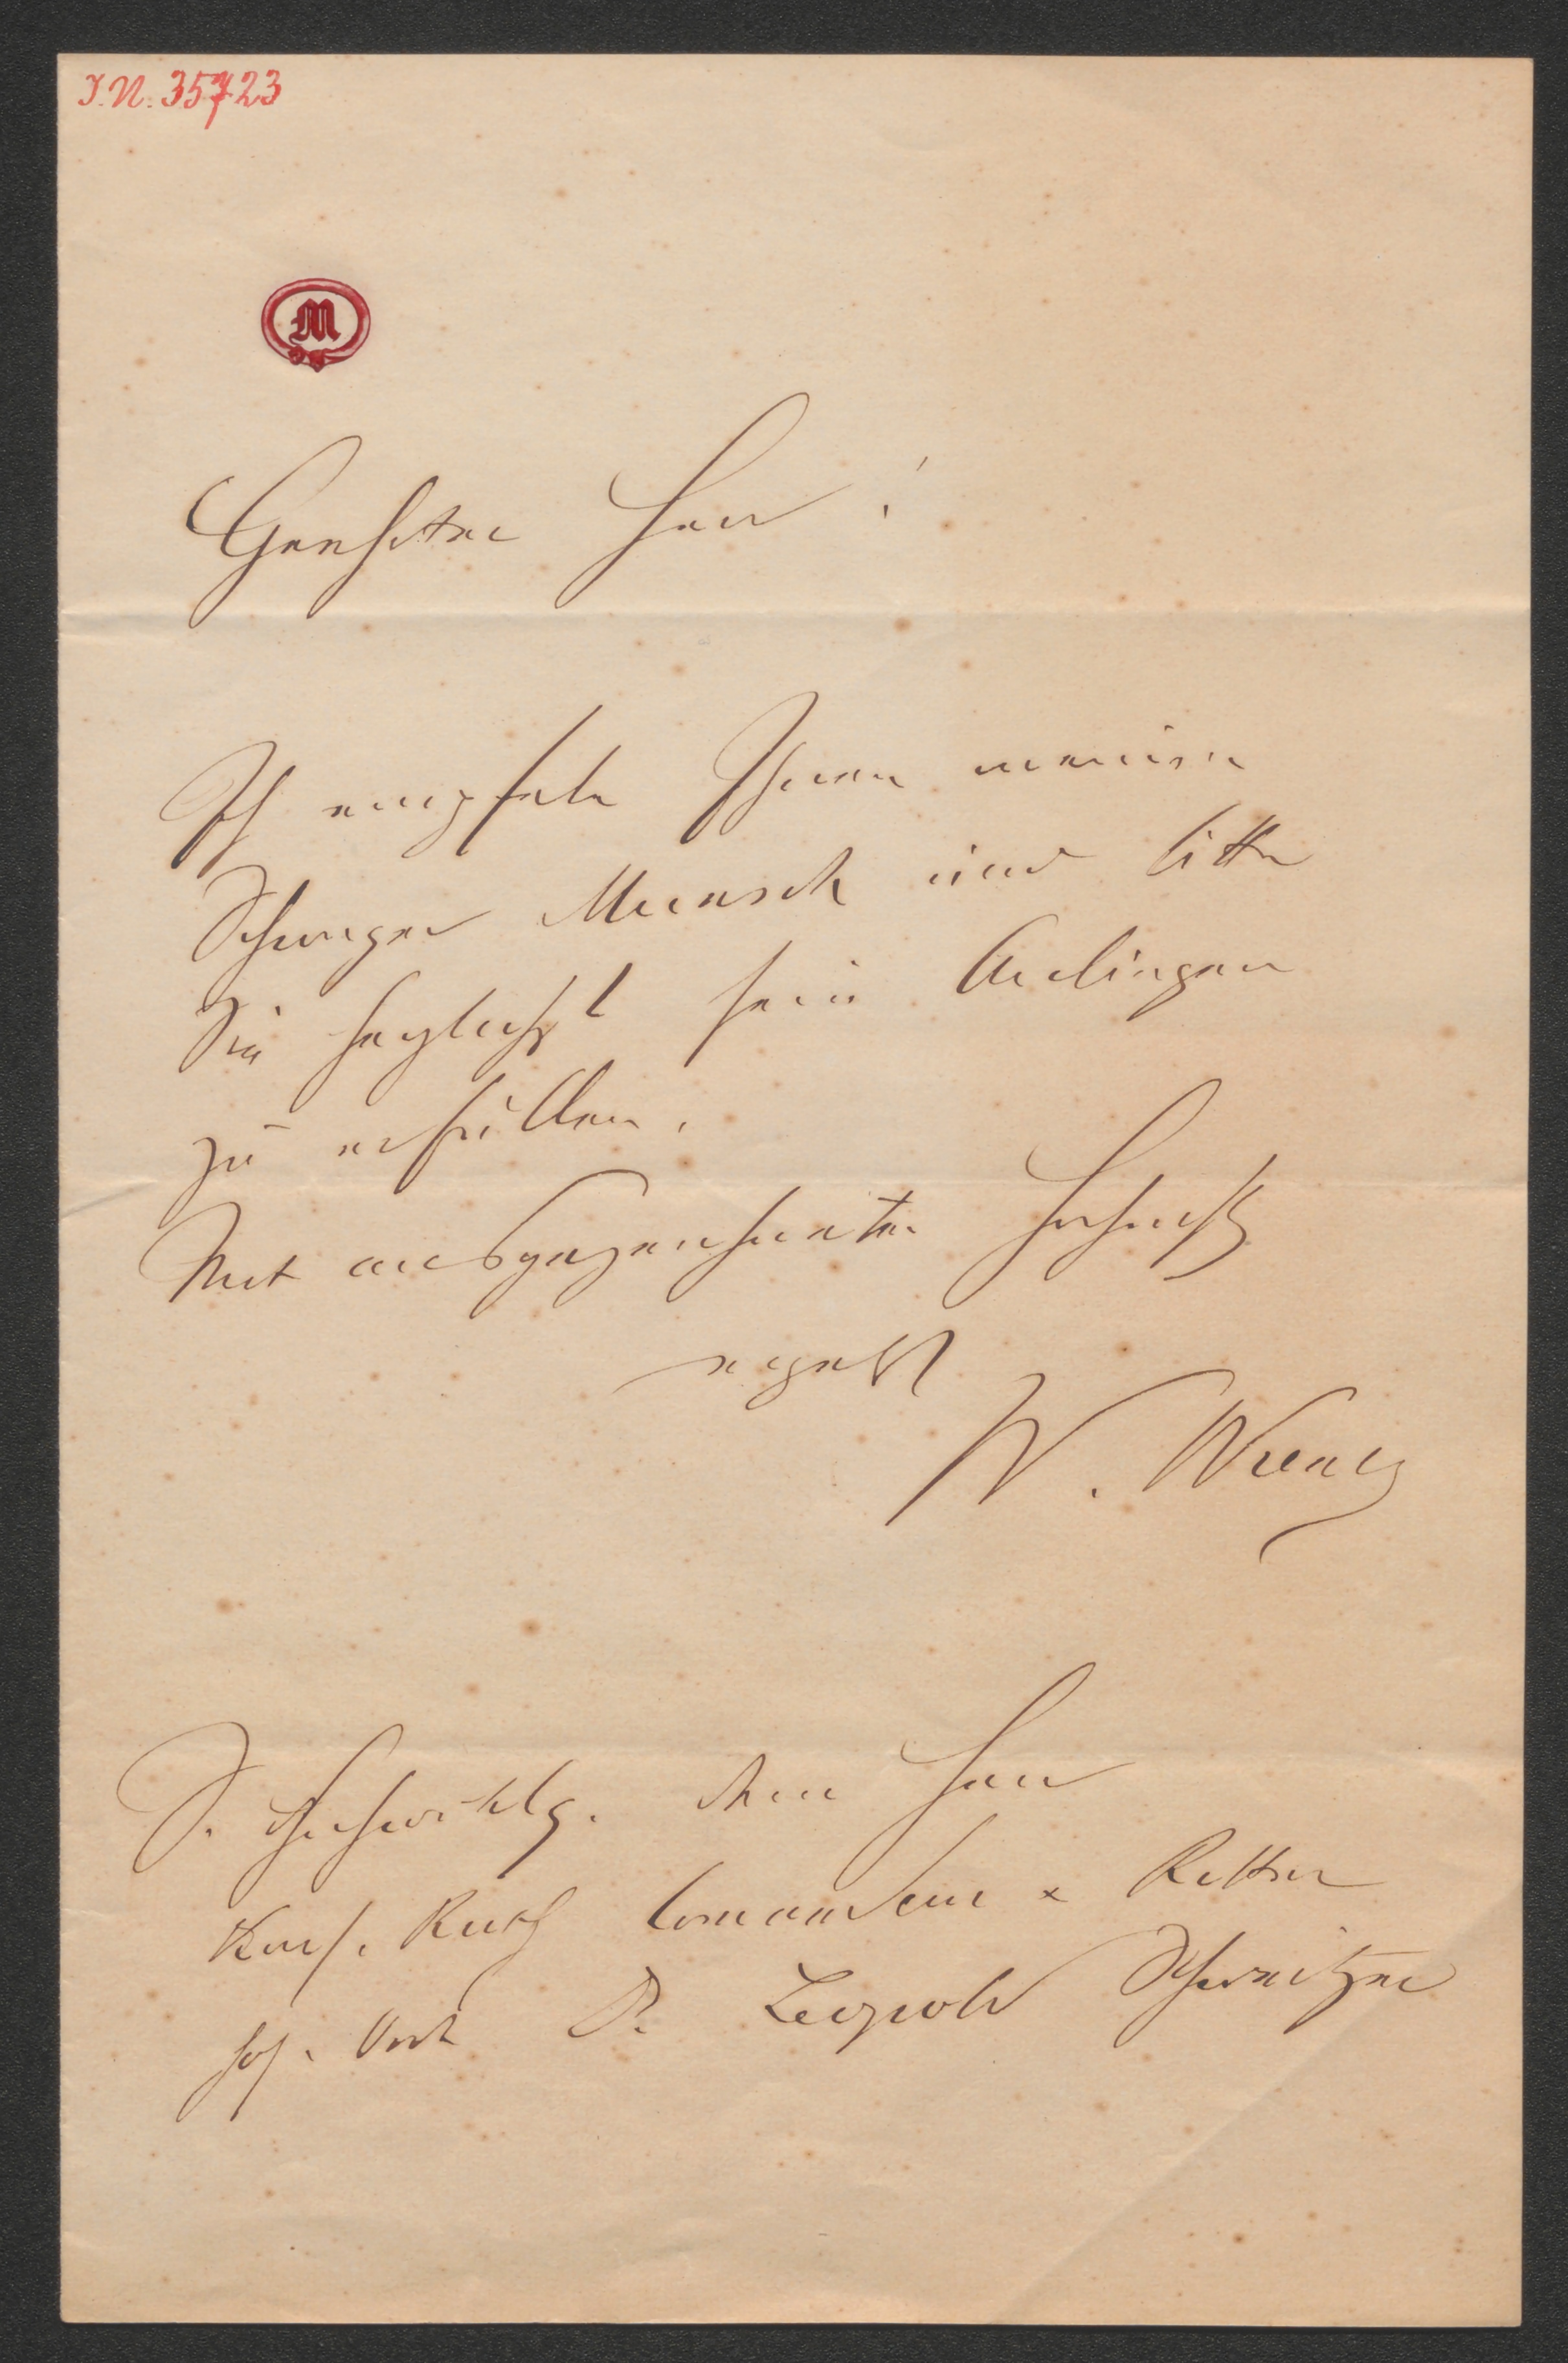 I.N. 35723
M
Geehrter Herr!
Ich empfele Ihnen meinen
Schwager Muensch und bitte
Sie herzlichst sein Anlingen
zu erfüllen.
Mit ausgezeichneter Hochacht
ergebst
W.
S. Hochwohlg. dem Herr
Kais. Rath Comandeur x Ritter
Dr. Leopold Schweitzer